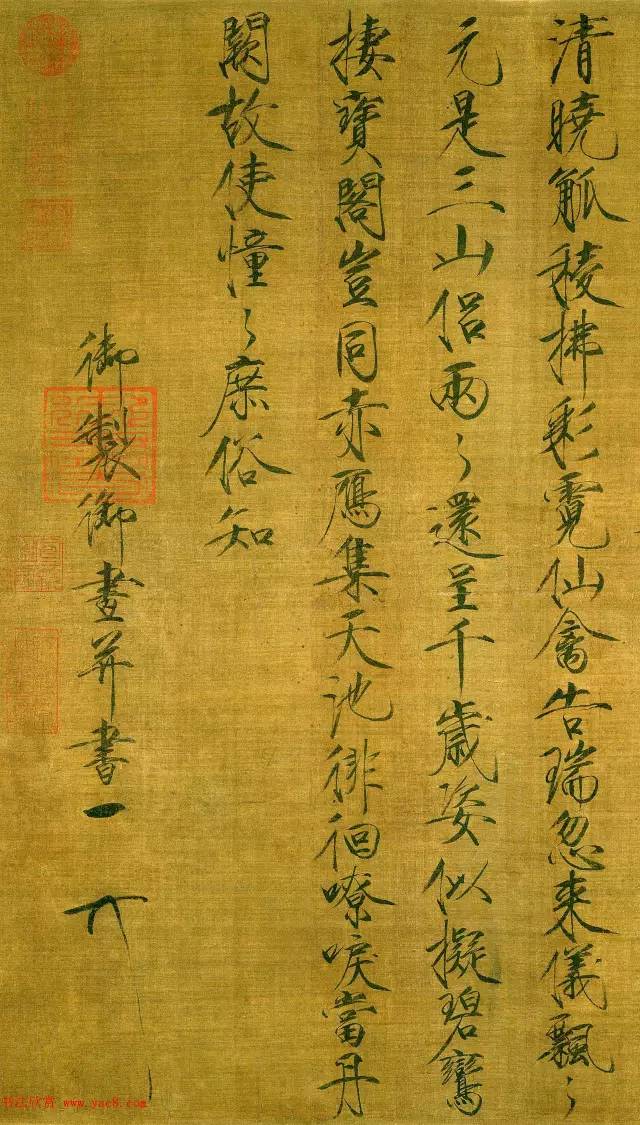 清曉觚稜拂彩霓仙禽告瑞忽来儀飄〻
元是三山侶兩〻還呈千歲姿似擬碧鸞
棲寶閣豈同赤鴈集天池徘徊嘹唳當丹
闕故使憧〻庶俗知
御製御畫并書
天下一人
书法欣赏 www.yac8.com